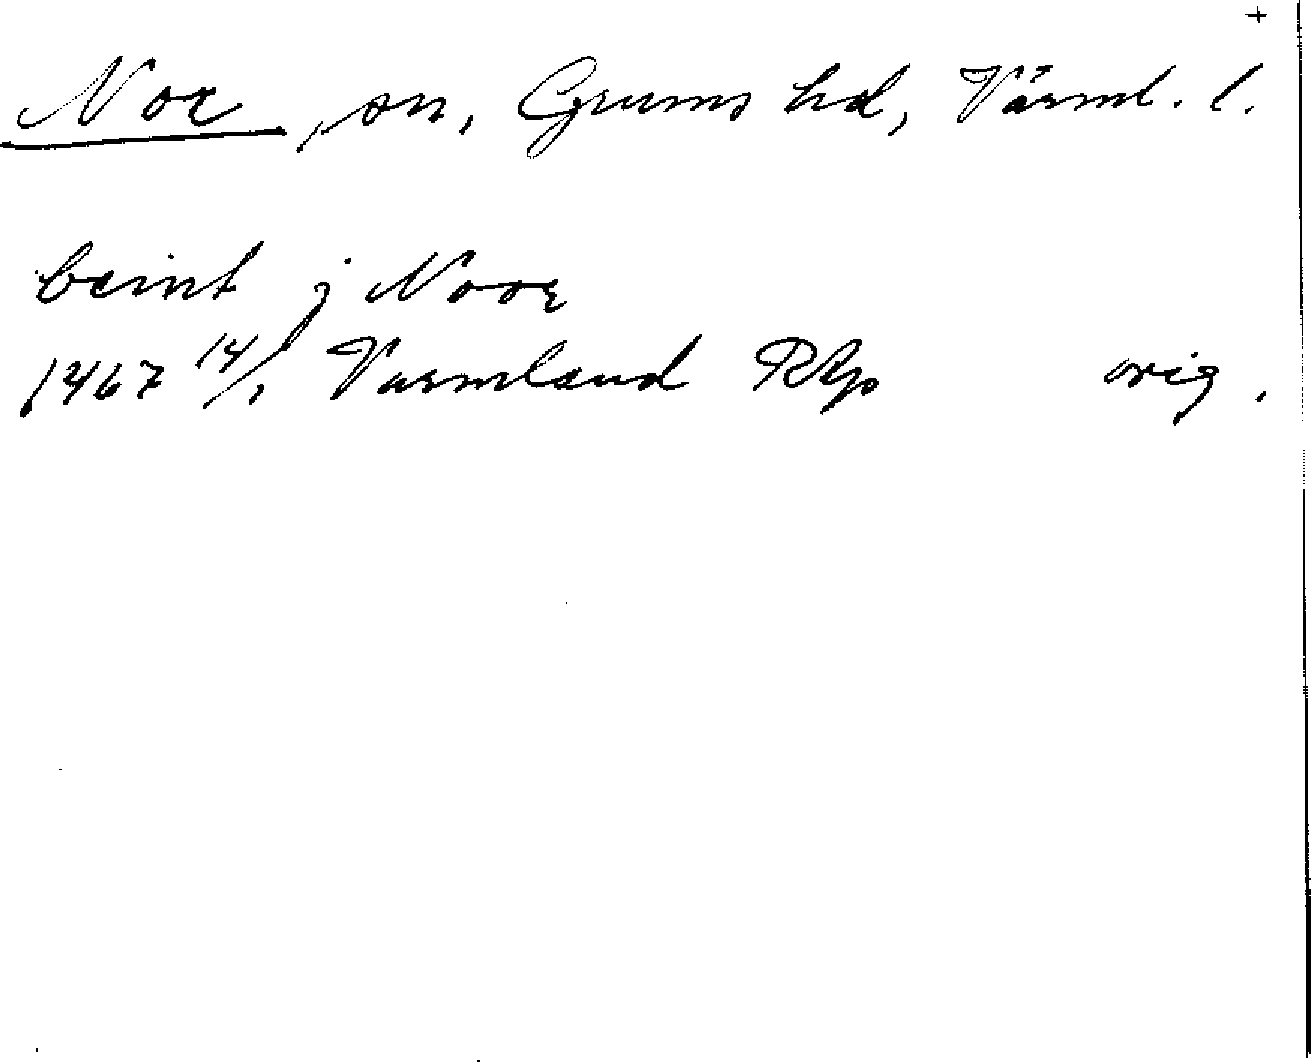 +
Nor, sn, Grums hd, Värml. l.
beint j Noor
1467 14/1 Varmland RAp orig.